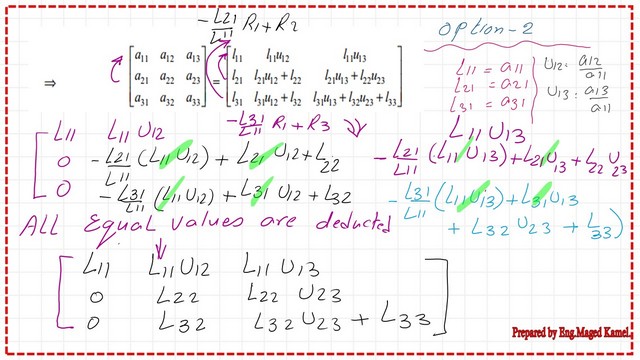 -L21/L11 R1+R2
option-2
⇒ [a11 a12 a13] = [l11 l11u12 l11u13]
[a21 a22 a23] [l21 l21u12+l22 l21u13+l22u23]
[a31 a32 a33] [l31 l31u12+l32 l31u13+l32u23+l33]
L11 = a11 U12 = a12/a11
L21 = a21 U13 = a13/a11
L31 = a31
-L31/L11 R1+R3
L11 L11U12 L11U13
0 -L21/L11 (L11U12) + L21U12+L22 -L21/L11 (L11U13)+L21U13+L22U23
0 -L31/L11 (L11U12) + L31U12+L32 -L31/L11 (L11U13)+L31U13
+ L32U23 + L33)
ALL Equal values are deducted
L11 L11U12 L11U13
0 L22 L22U23
0 L32 L32U23 + L33
Prepared by Eng.Maged Kamel.